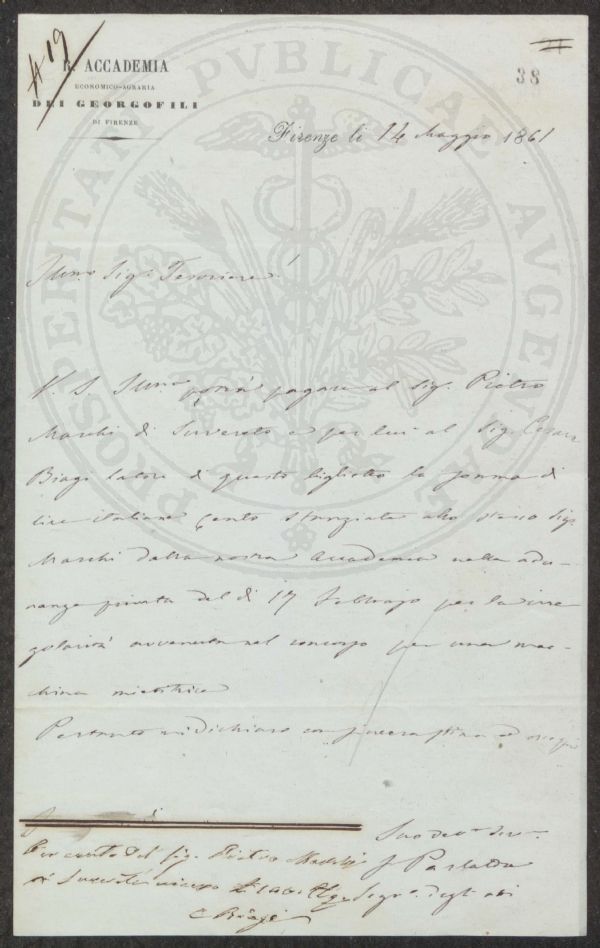 # 19
R. ACCADEMIA
ECONOMICO-AGRARIA
DEI GEORGOFILI
DI FIRENZE
38
Firenze li 14 Maggio 1861
Illmo. Sig. Tesoriere!
V. S. Illma potrà pagare al Sig. Pietro
Marchi di Suvereto e per lui al Sig. Cesare
Biagi latore di questo biglietto la somma di
lire italiane cento stanziata allo stesso Sig.
Marchi dalla nostra Accademia nella adu-
nanza privata del dì 17 Febbrajo per la irre
golarità avvenuta nel concorso per una mac-
china mietitrice
Pertanto mi dichiaro con sincera stima ed ossequio
Suo dev.
Per conto del Sig. Pietro Marchi
di Suvereto
Segr. degli atti
C Biagi
PROSPERITATI PVBLICAE AVGENDAE